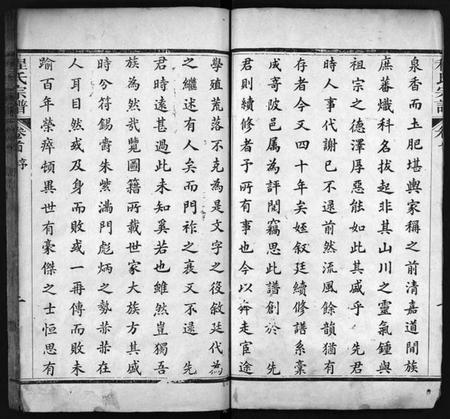 泉香而土肥堪輿家稱之前清嘉道間族
庶蕃熾科名拔起非其山川之靈氣鍾與
祖宗之德澤厚惡能如此其盛乎 先君
時人事代謝已不逮前然流風餘韻猶有
存者今又四十年矣姪叙廷續修譜系稾
成寄陂邑属為評閱竊思此譜創於 先
君則續修者予所有事也今以奔走宦途
學殖荒落不克為是文字之役敘廷代為
之繼述有人矣而門祚之衰又不逮 先
君時遠甚過此未知奚若也雖然豈獨吾
族為然哉覽國籍所載世家大族方其盛
時分符錫爵朱紫滿門彪炳之勢赫赫在
人耳目然或及身而敗或一再傳而敗未
踰百年榮瘁頓異世有豪傑之士恒思有
程氏宗譜 卷首序